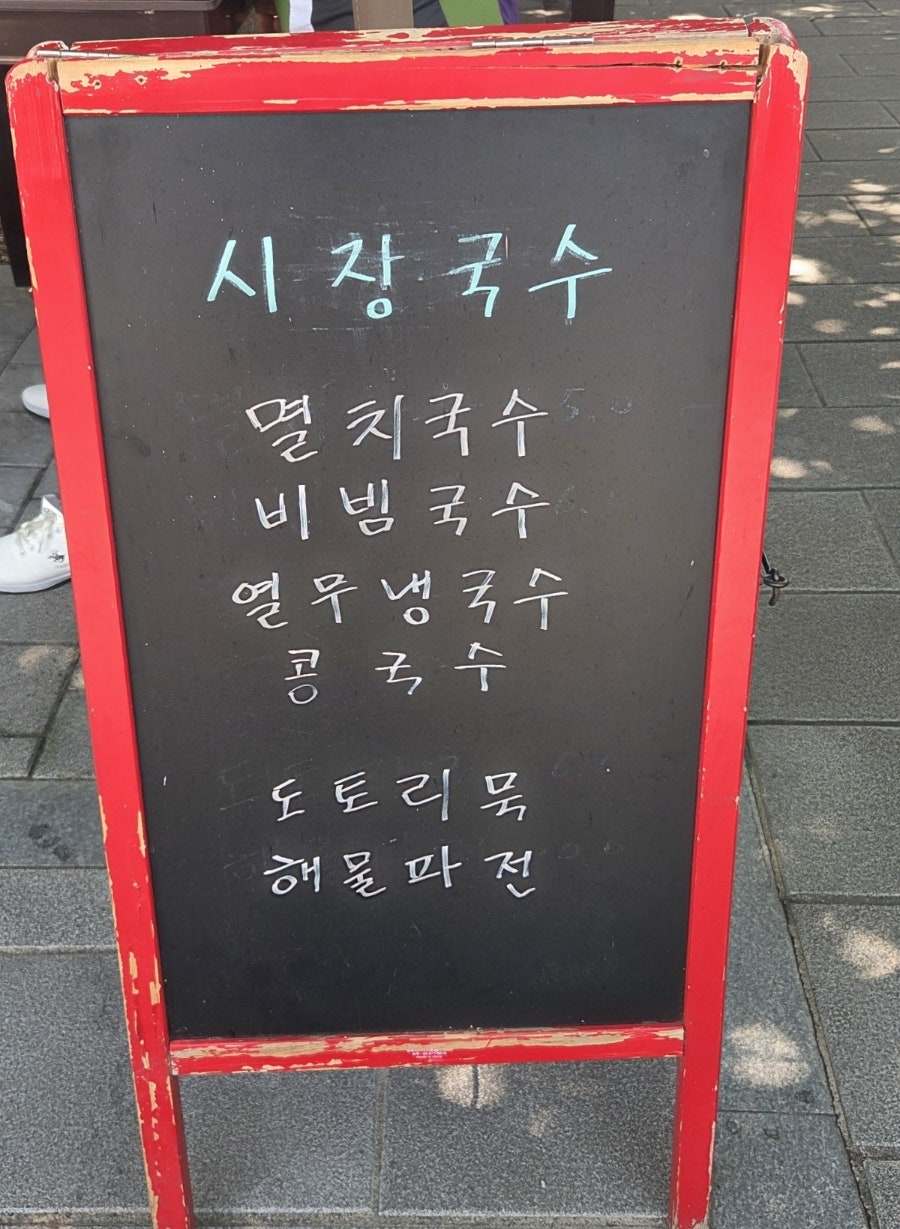 시장국수
멸치국수
비빔국수
열무냉국수
콩국수
도토리묵
해물파전